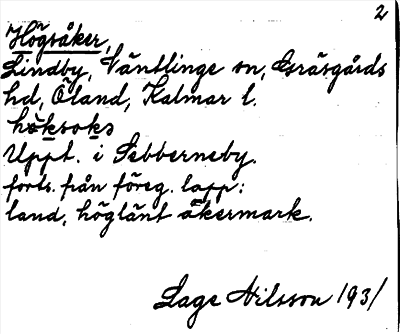 2
Högsåker,
Lindby, Väntlinge sn, Gräsgårds
hd, Öland, Kalmar l.
höksoks
Uppt. i Sebberneby.
forts. från föreg. lapp:
land, höglänt åkermark.
Lage Nilsson 1931